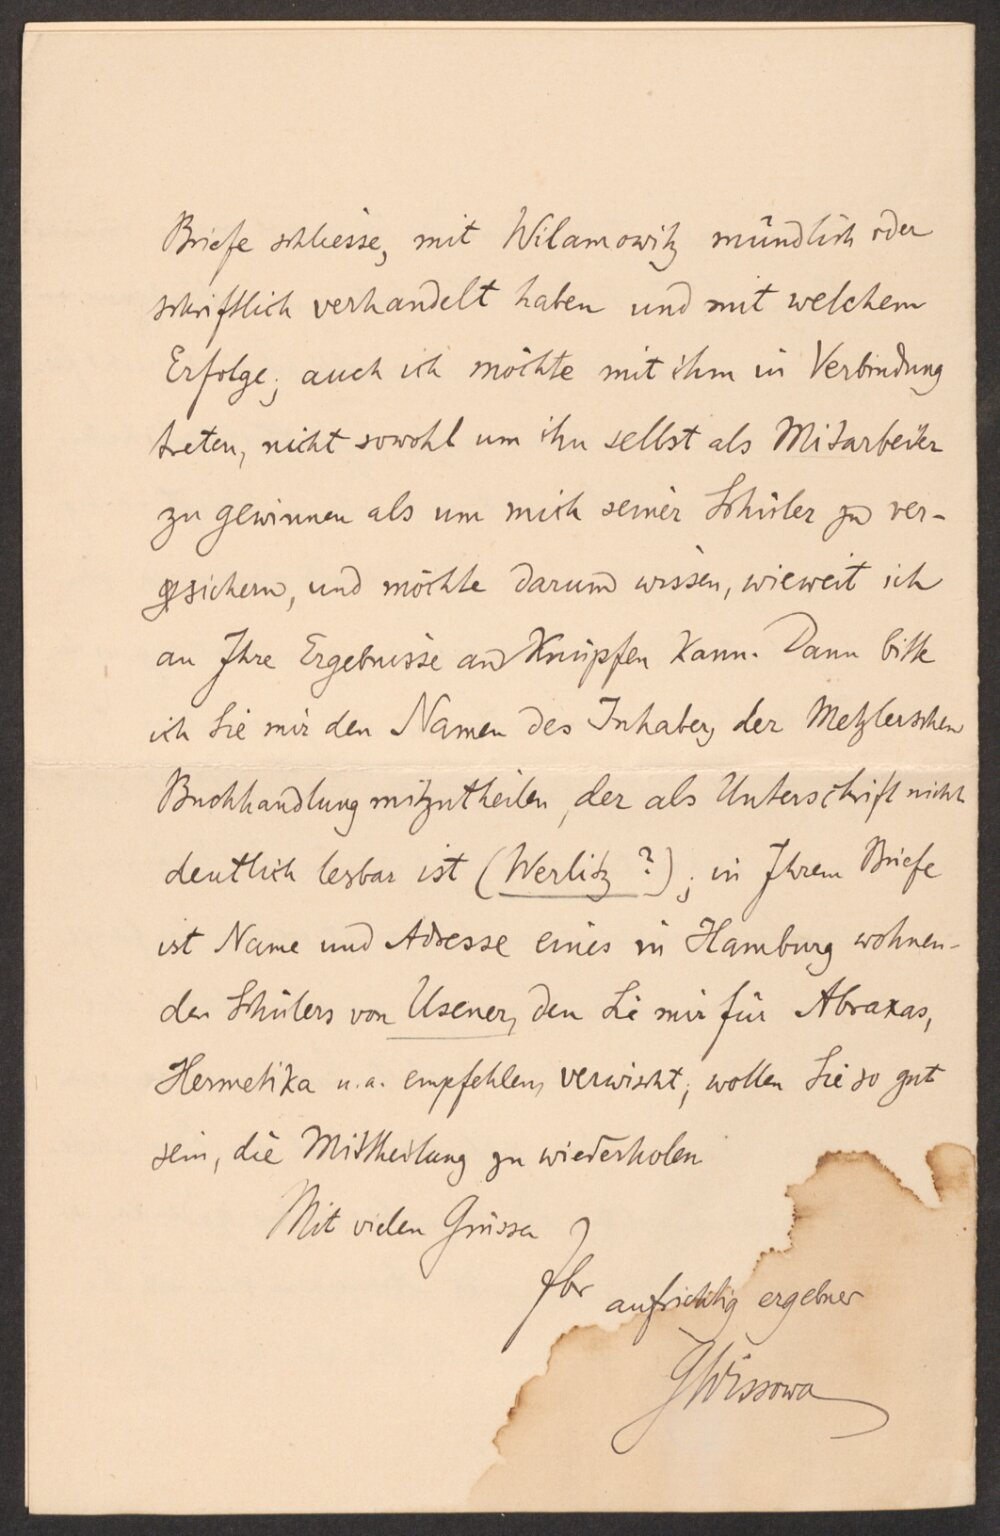 Briefe schliesse, mit Wilamowitz mündlich oder
schriftlich verhandelt haben und mit welchem
Erfolge; auch ich möchte mit ihm in Verbindung
treten, nicht sowohl um ihn selbst als Mitarbeiter
zu gewinnen als um mich seiner Schüler zu ver-
sichern, und möchte darum wissen, wieweit ich
an Ihre Ergebnisse anknüpfen kann. Dann bitte
ich Sie mir den Namen des Inhabers der Metzlerschen
Buchhandlung mitzutheilen, der als Unterschrift nicht
deutlich lesbar ist (Werlitz ?); in Ihrem Briefe
ist Name und Adresse eines in Hamburg wohnen-
den Schülers von Usener, den Sie mir für Abraxas,
Hermetika u.a. empfehlen, verwischt; wollen Sie so gut
sein, die Mittheilung zu wiederholen
Mit vielen Grüssen
Ihr aufrichtig ergebner
GWissowa